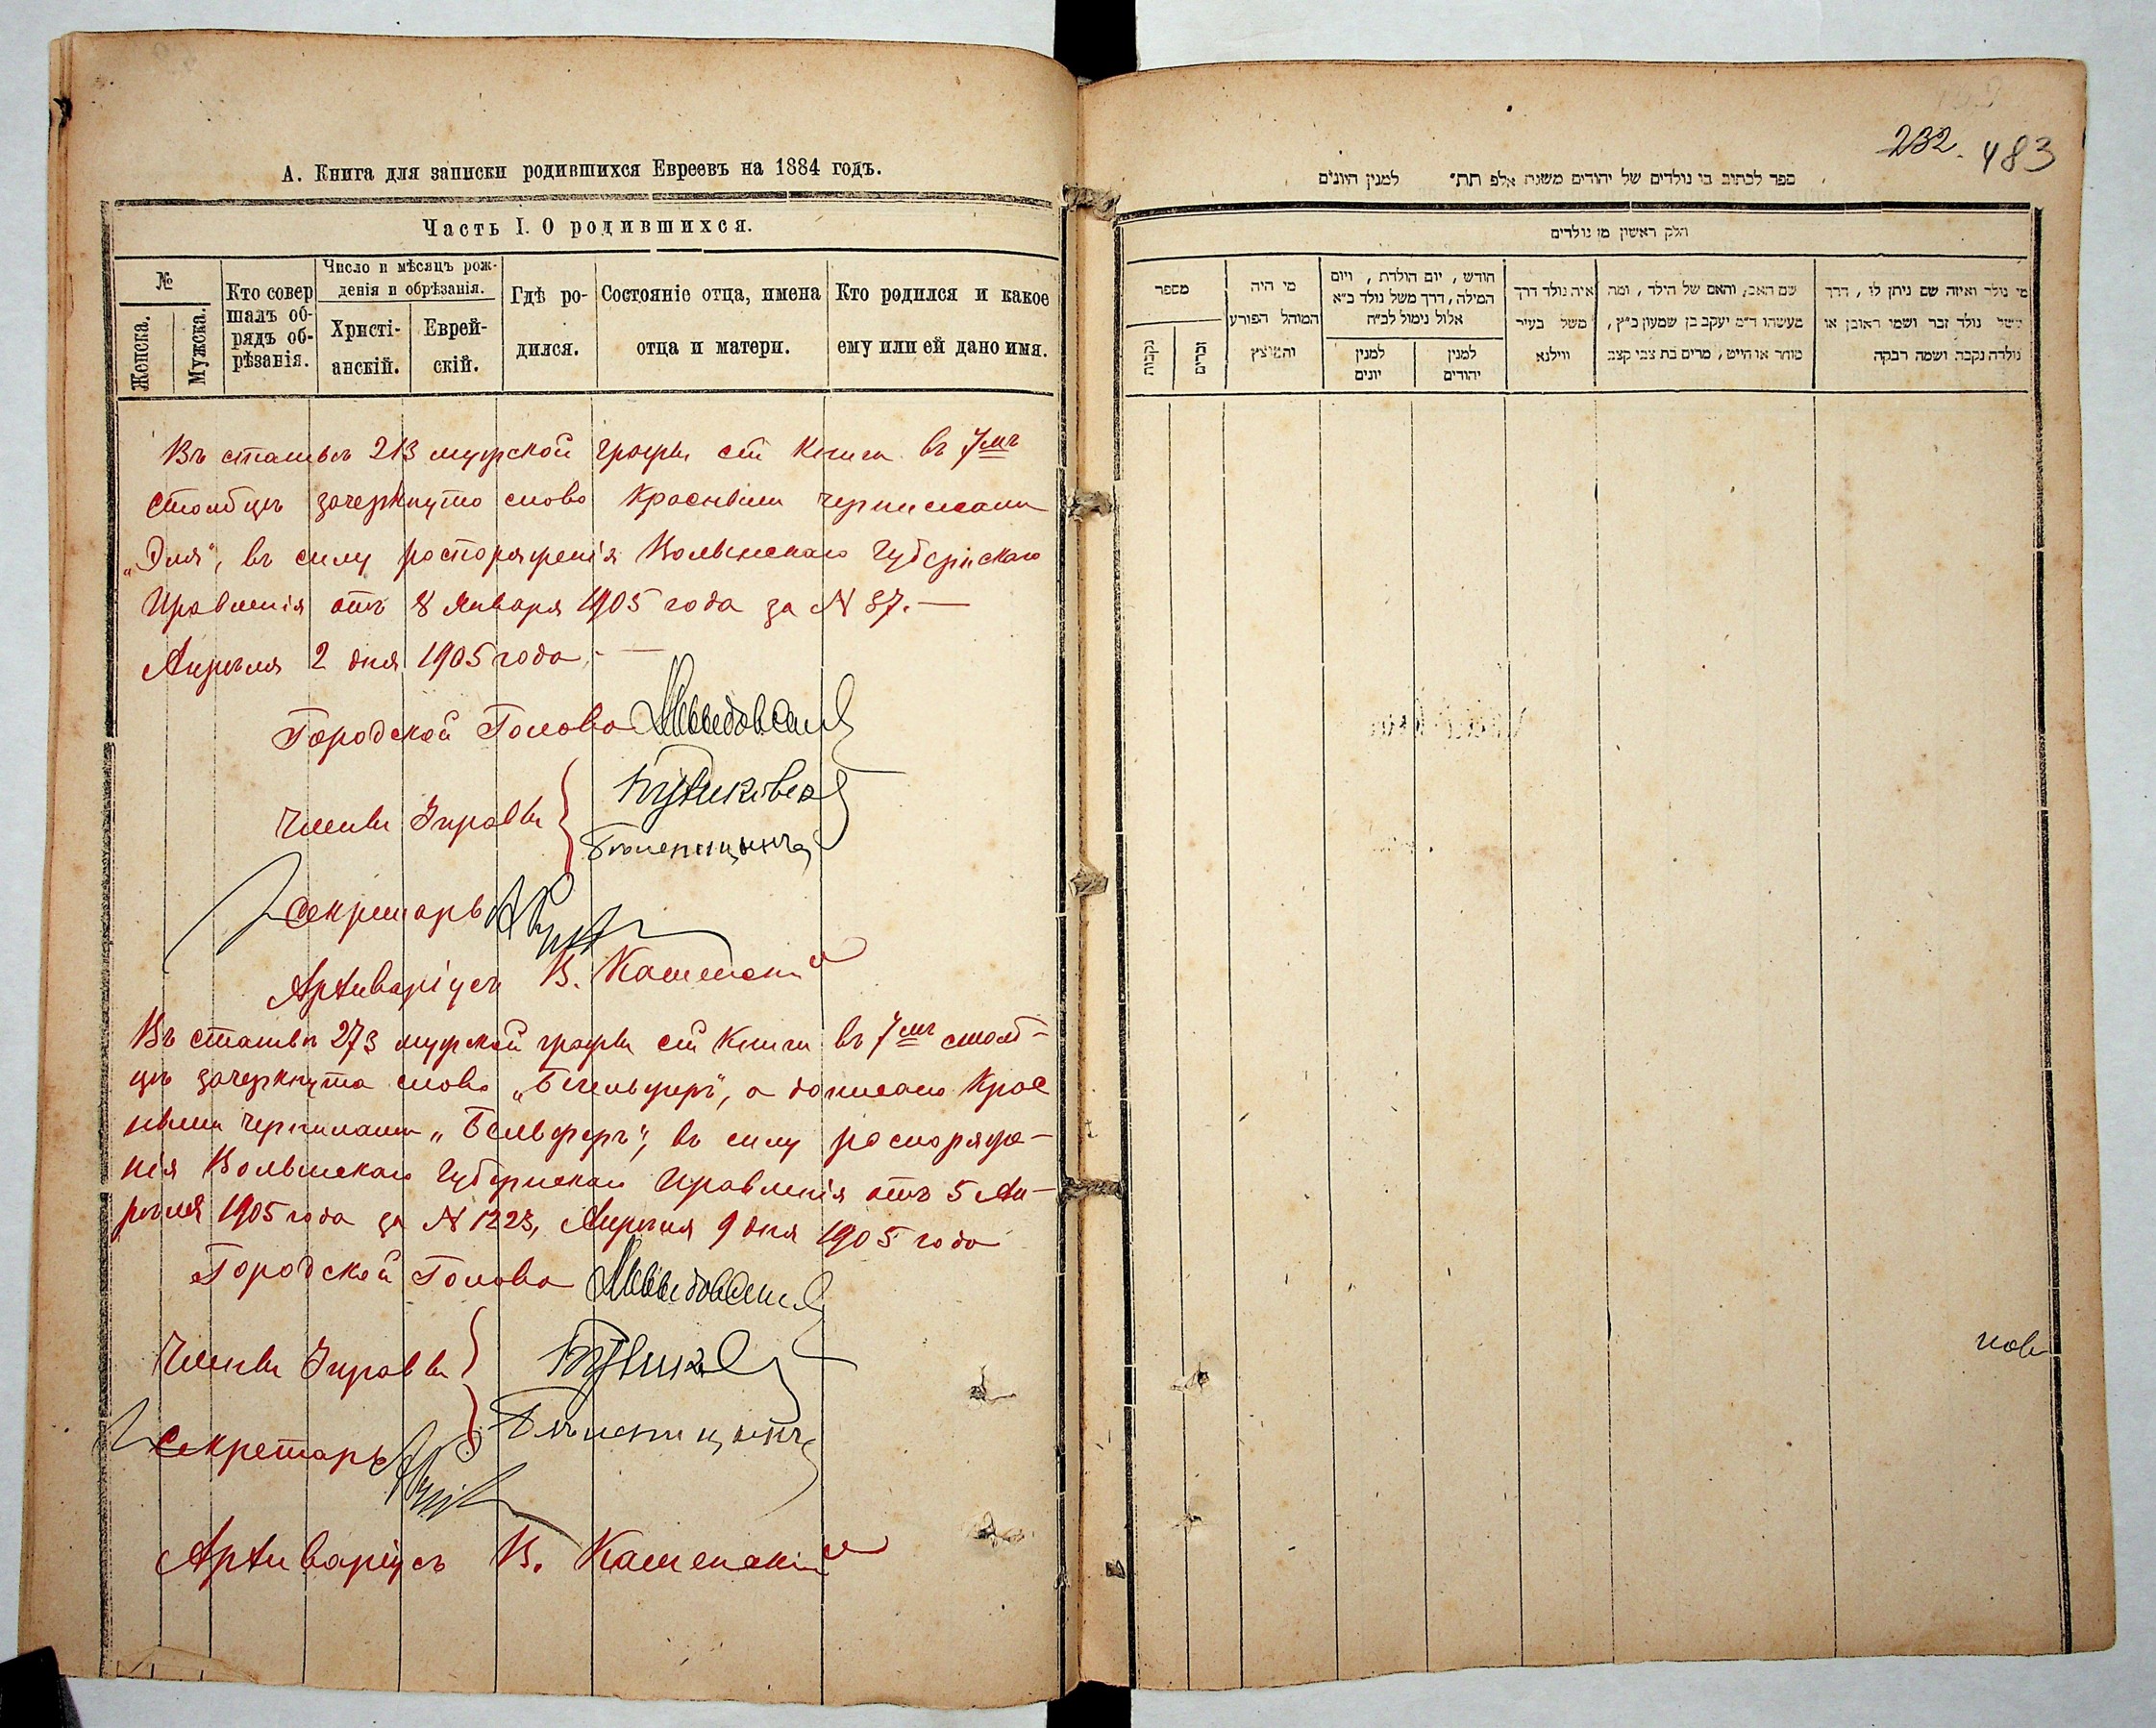 А. Книга для записки родившихся Евреевъ на 1884 годъ.
Часть I. О родившихся.
№
Женска.
Мужска.
Кто совер
шалъ об-
рядъ об-
рѣзанія.
Число и мѣсяцъ рож-
денія и обрѣзанія.
Христі-
анскій.
Еврей-
скій.
Гдѣ ро-
дился.
Состояніе отца, имена
отца и матери.
Кто родился и какое
ему или ей дано имя.
Въ статьѣ 213 мужской графы сей Книги въ 7мъ
столбцѣ зачеркнуто слово красными чернилами
въ силу распоряженія Волынскаго Губернскаго
Правленія отъ 8 Января 1905 года за N 37.—
Апрѣля 2 дня 1905 года.—
Городской Голова
Члены Управы
Секретарь
Архиваріусъ В. Каменскій
Въ статьѣ 273 мужской графы сей Книги въ 7мъ столб-
цѣ зачеркнута слово а дописано Крас
ными чернилами „Бельферъ", въ силу распоряже-
нія Волынскаго Губернскаго Правленія отъ 5 Ап-
рѣля 1905 года за N 1223, Апрѣля 9 дня 1905 года
Городской Голова
Члены Управы
Секретарь
Архиваріусъ В. Каменскій
232. 483
ספר לכתוב בו נולדים של יהודים משנת אלפ תת״ למנין היונים
חלק ראשון מן נולדים
מספר
נקבות
זכרים
מי היה
המוהל הפורע
והמוצץ
חודש, יום הולדת, ויום
המילה, דרך משל נולד כ״א
אלול נימול לכ״ח
למנין
יונים
למנין
יהודים
איה נולד דרך
משל בעיר
ווילנא
שם האב, והאם של הילד, ומה
מעשהו ד״מ יעקב בן שמעון כ״ץ,
סוחר או חייט, מרים בת צבי קצב
מי נולד ואיזה שם ניתן לו, דרך
משל נולד זכר ושמו ראובן או
נולדה נקבה ושמה רבקה